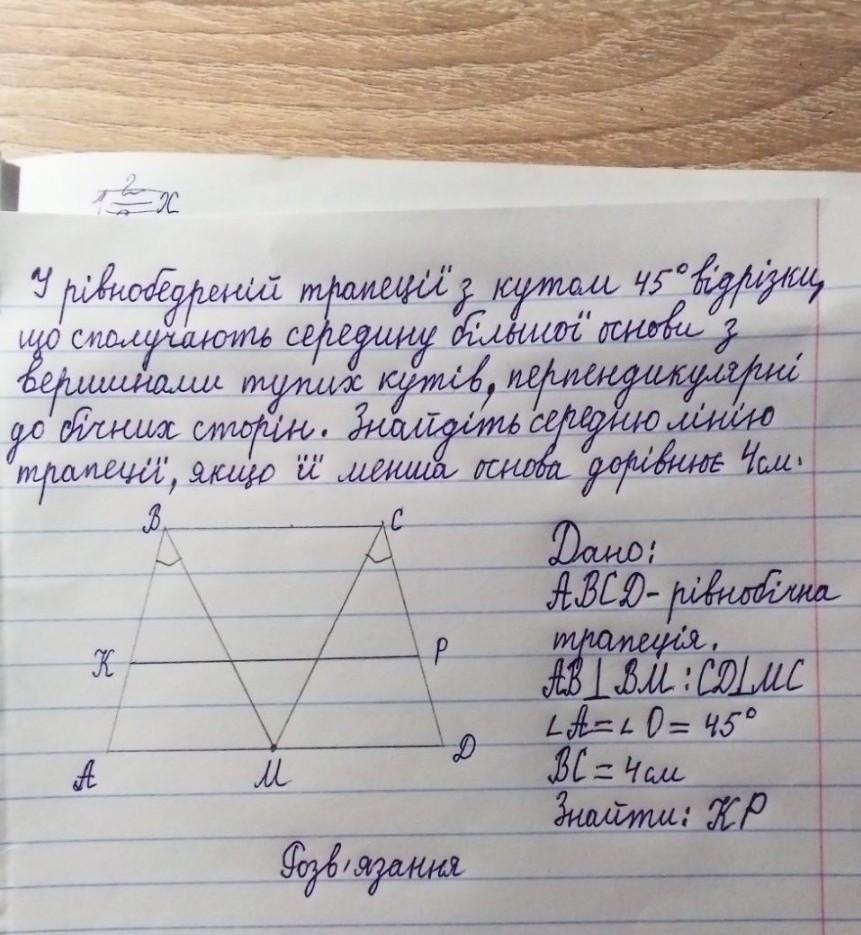 2
x
У рівнобедреній трапеції з кутом 45° відрізки,
що сполучають середину більшої основи з
вершинами тупих кутів, перпендикулярні
до бічних сторін. Знайдіть середню лінію
трапеції, якщо її менша основа дорівнює 4см.
B C
K P
A M D
Дано:
ABCD - рівнобічна
трапеція.
AB⊥BM : CD⊥MC
∠A=∠D= 45°
BC = 4см
Знайти: KP
Розв'язання